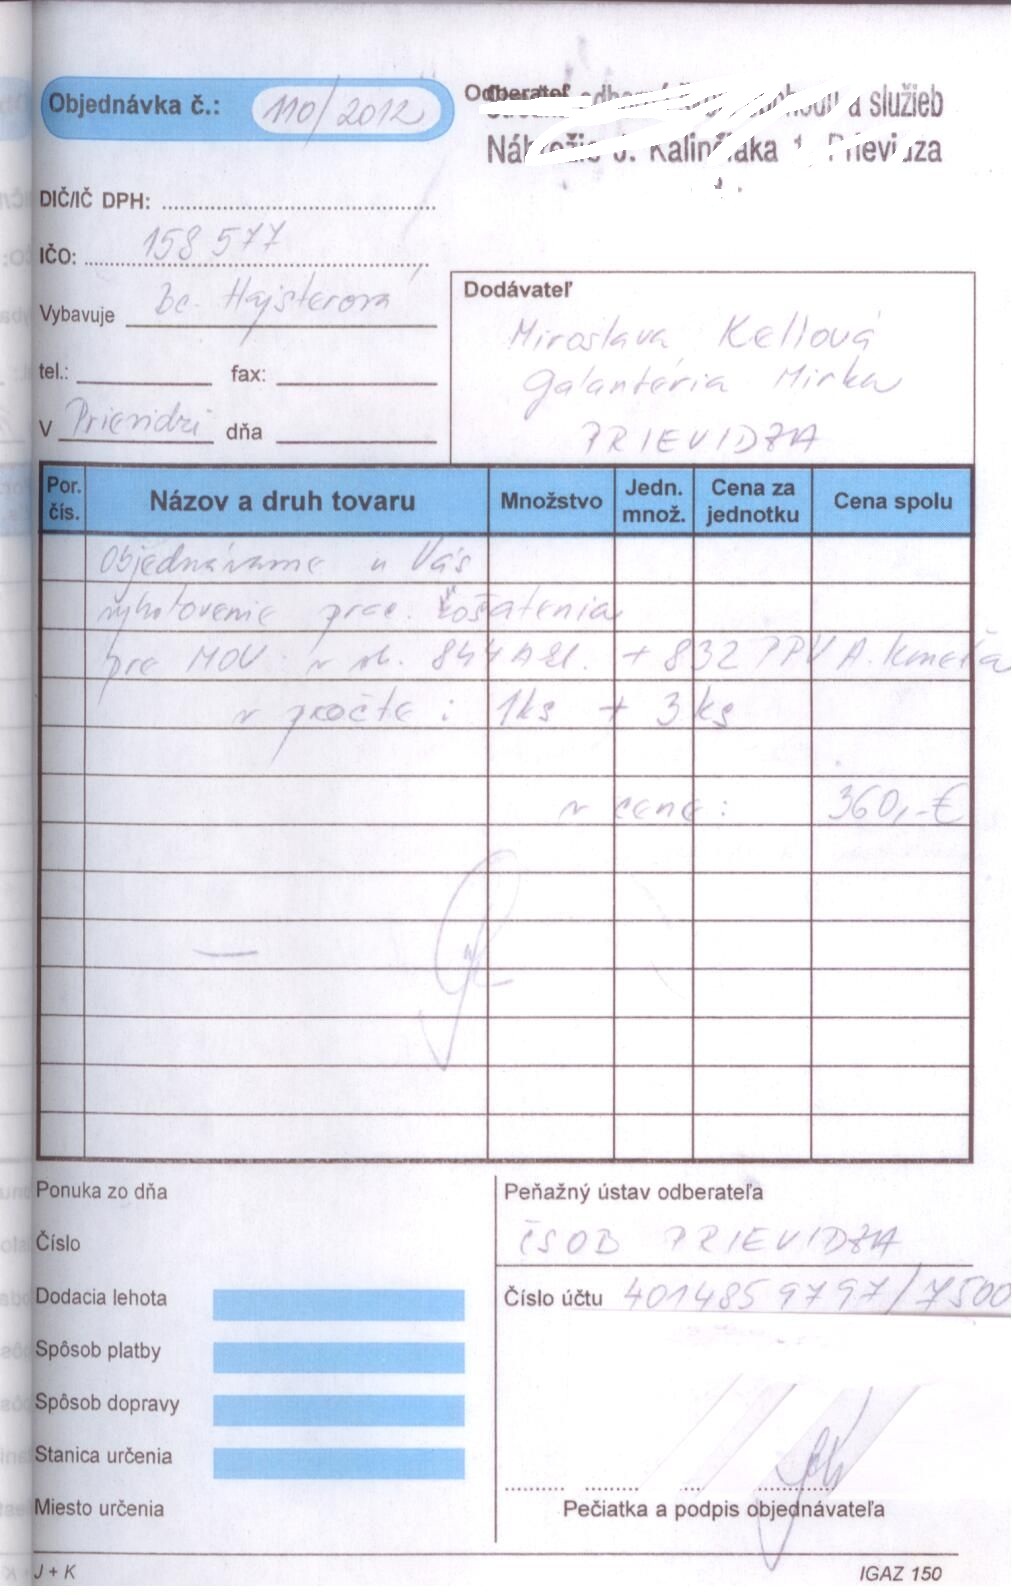 Objednávka č.: 110/2012
Odberateľ
a služieb
J. Kalinčiaka 1, Prievidza
DIČ/IČ DPH:
IČO: 158 577
Vybavuje Bc. Hajsterová
tel.: fax:
V Prievidzi dňa
Dodávateľ
Miroslava Kellová
Galantéria Mirka
PRIEVIDZA
Por. čís. Názov a druh tovaru Množstvo Jedn. množ. Cena za jednotku Cena spolu
Objednávame u Vás
vyhotovenie prac. ošatenia
pre MOV v šk. 844 + 832 PPV A. Kmeťa
v počte : 1ks + 3 ks
v cene : 360,-€
Ponuka zo dňa
Číslo
Dodacia lehota
Spôsob platby
Spôsob dopravy
Stanica určenia
Miesto určenia
Peňažný ústav odberateľa
ČSOB PRIEVIDZA
Číslo účtu 4014859797/7500
Pečiatka a podpis objednávateľa
J + K
IGAZ 150